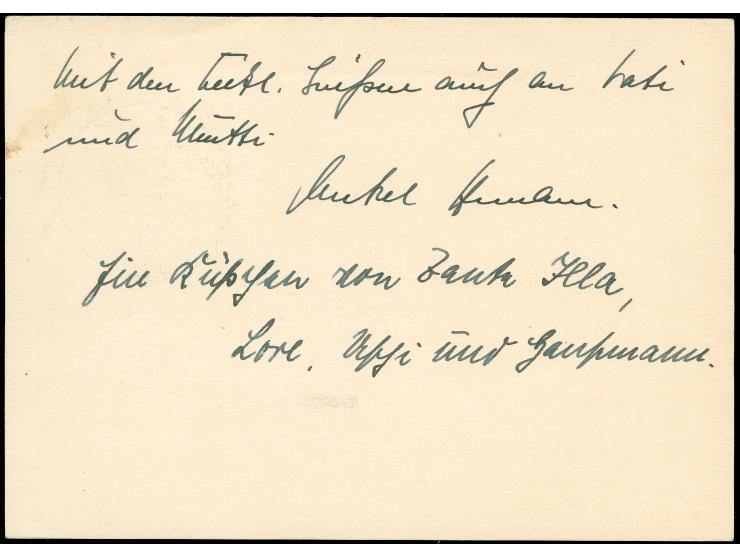 Mit den herzl. Grüßen auch an Vati
und Mutti
Onkel Hermann.
Ein Küßchen von Tante Illa,
Lore, und Hansmann.